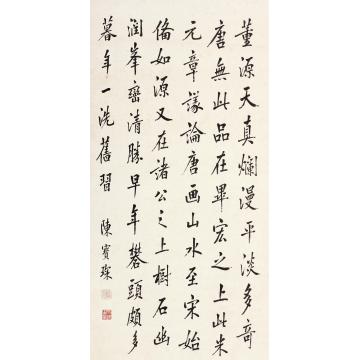 董源天真爛漫平淡多奇
唐無此品在畢宏之上此米
元章議論唐画山水至宋始
備如源又在諸公之上樹石幽
潤峯巒清勝早年礬頭頗多
暮年一洗舊習
陳寶琛